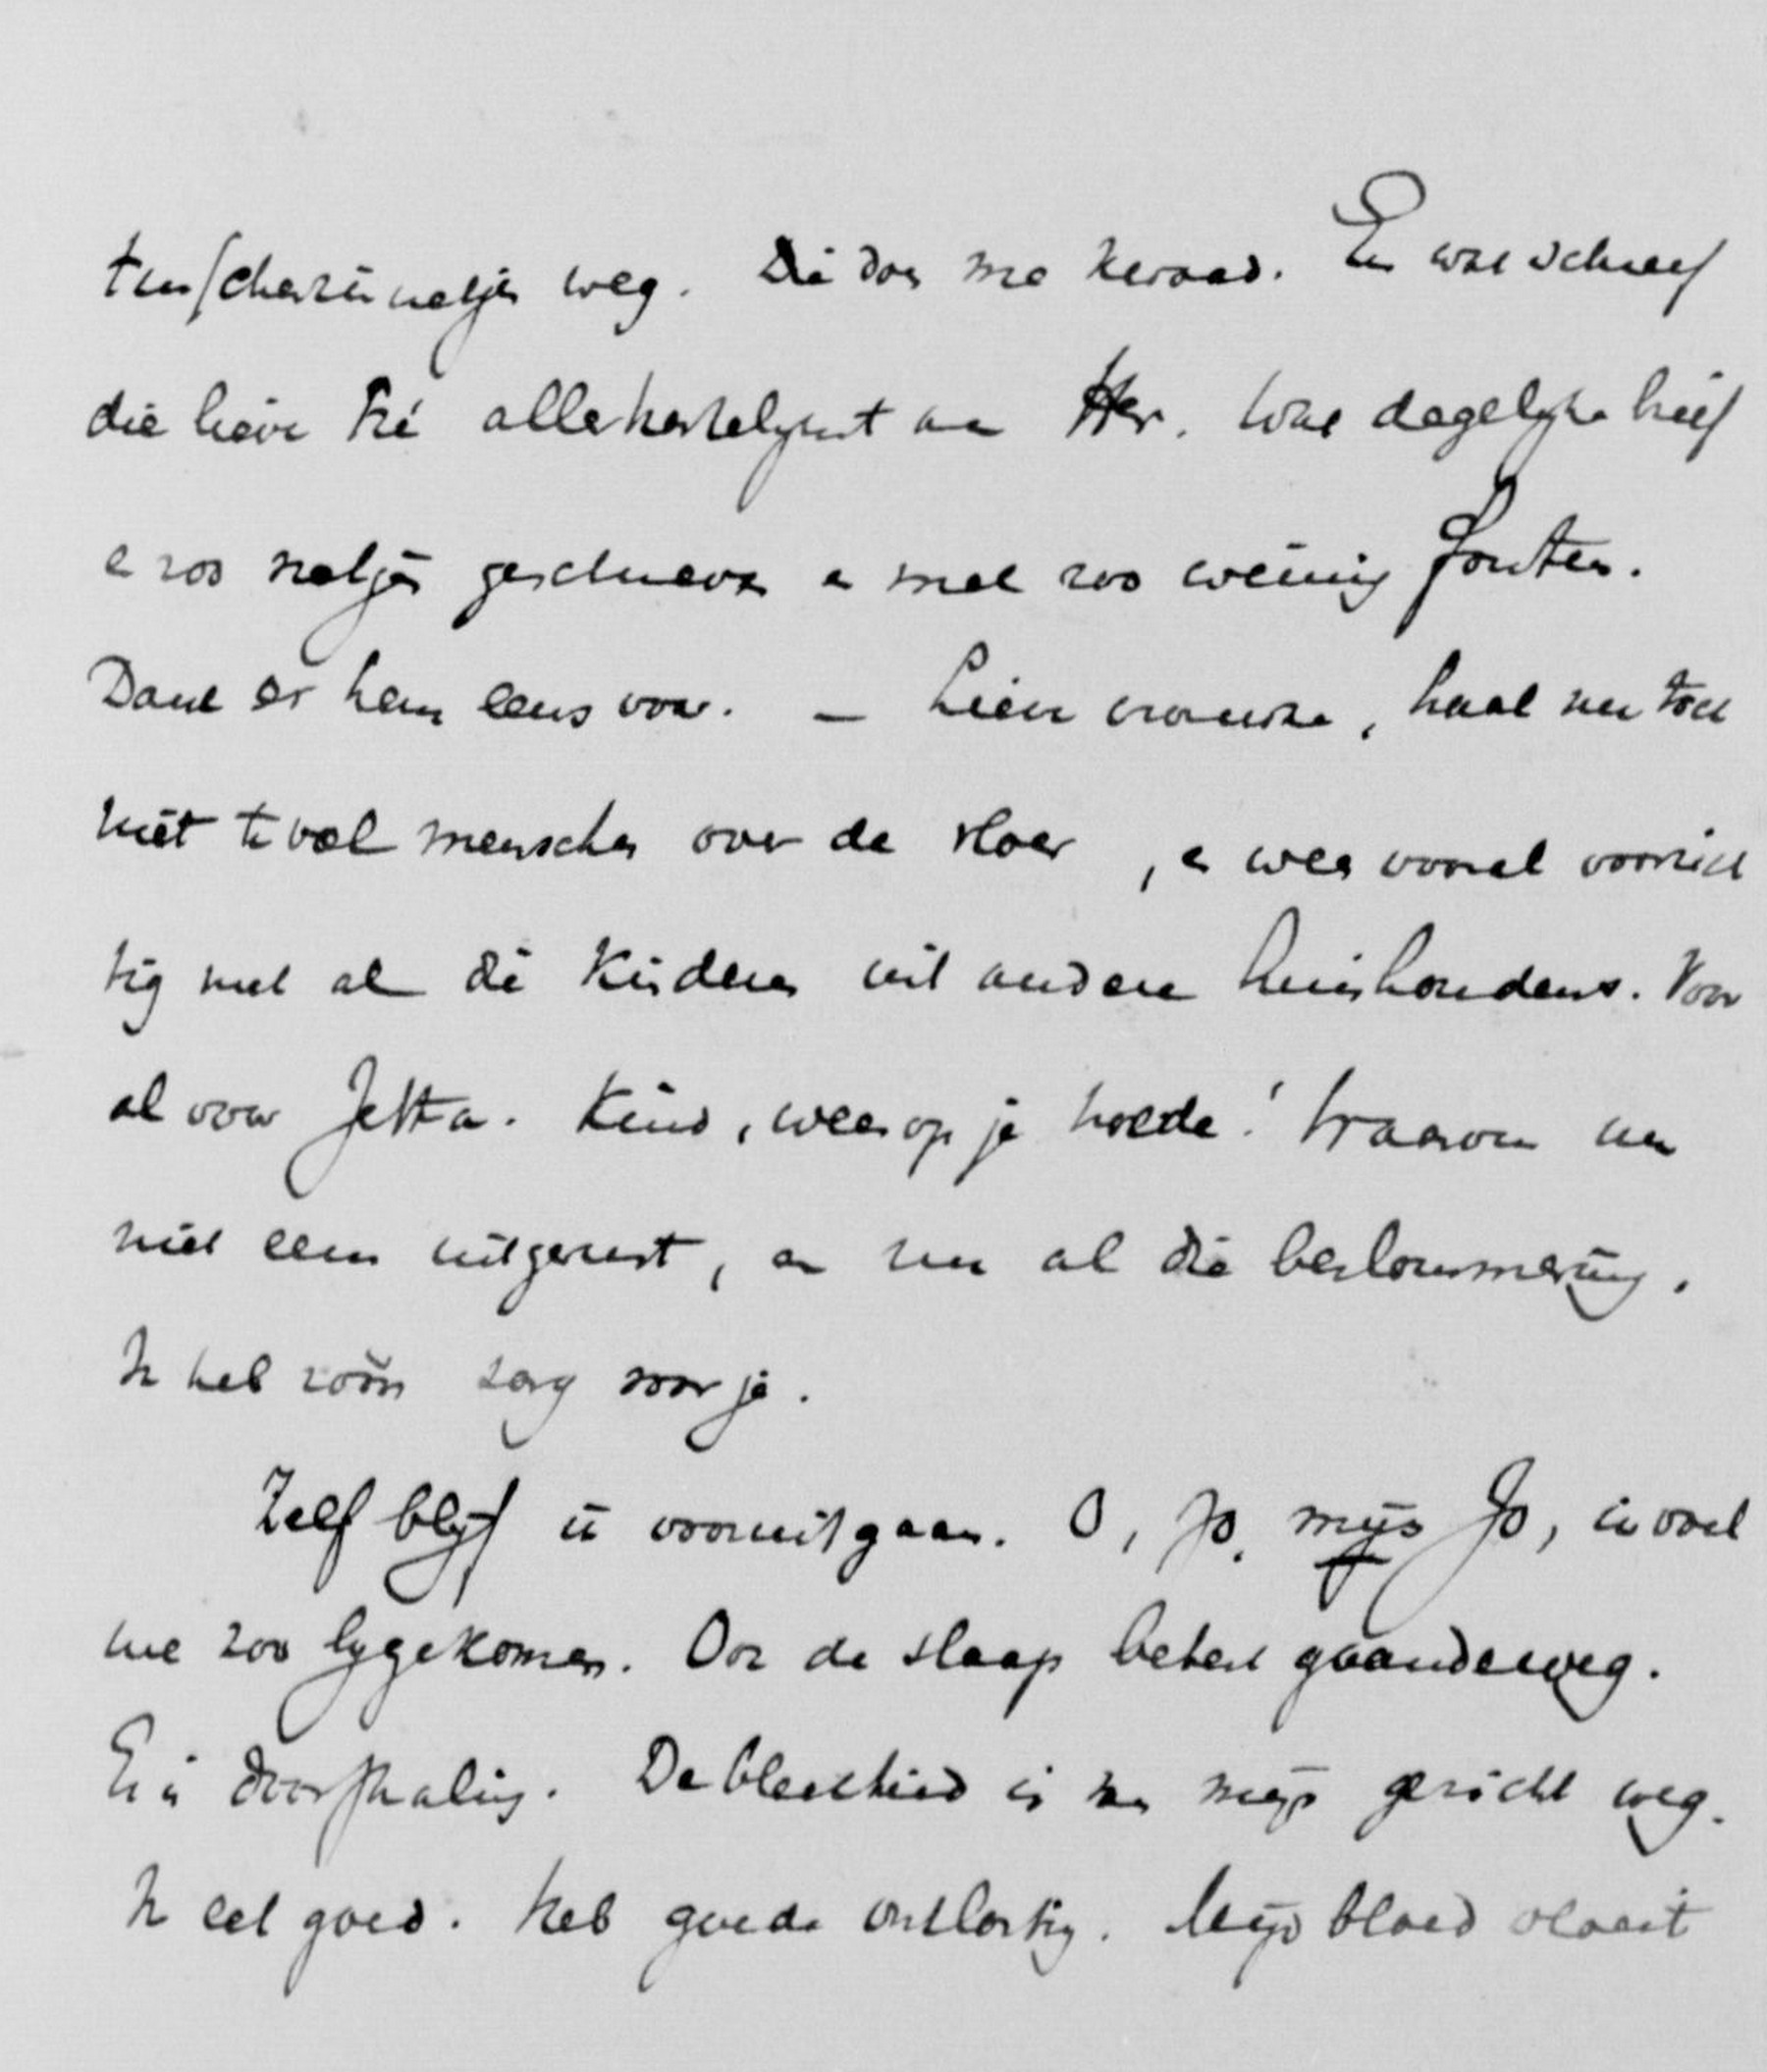 weg. Die doen me kwaad. En wat schreef
die lieve allerhartelijkst aan Har. Wat degelijke brief
en zoo netjes geschreven en met zoo weinig fouten.
Dank er hem eens voor. – Lieve vrouwke, haal nu toch
niet te veel menschen over de vloer, en wees vooral voorzich
tig met al die kinderen uit andere huishoudens. Voor
al voor Jetta. Kind, wees op je hoede! Waarom nu
niet eens uitgerust, en nu al die beslommering.
Ik heb zóón zorg voor je.
Zelf blijf ik vooruitgaan. O, Jo, mijn Jo, ik voel
me zoo bijgekomen. Ook de slaap betert gaandeweg.
En is De bleekheid is van mijn gezicht weg.
Ik eet goed. Heb goede ontlasting. Mijn bloed vloeit